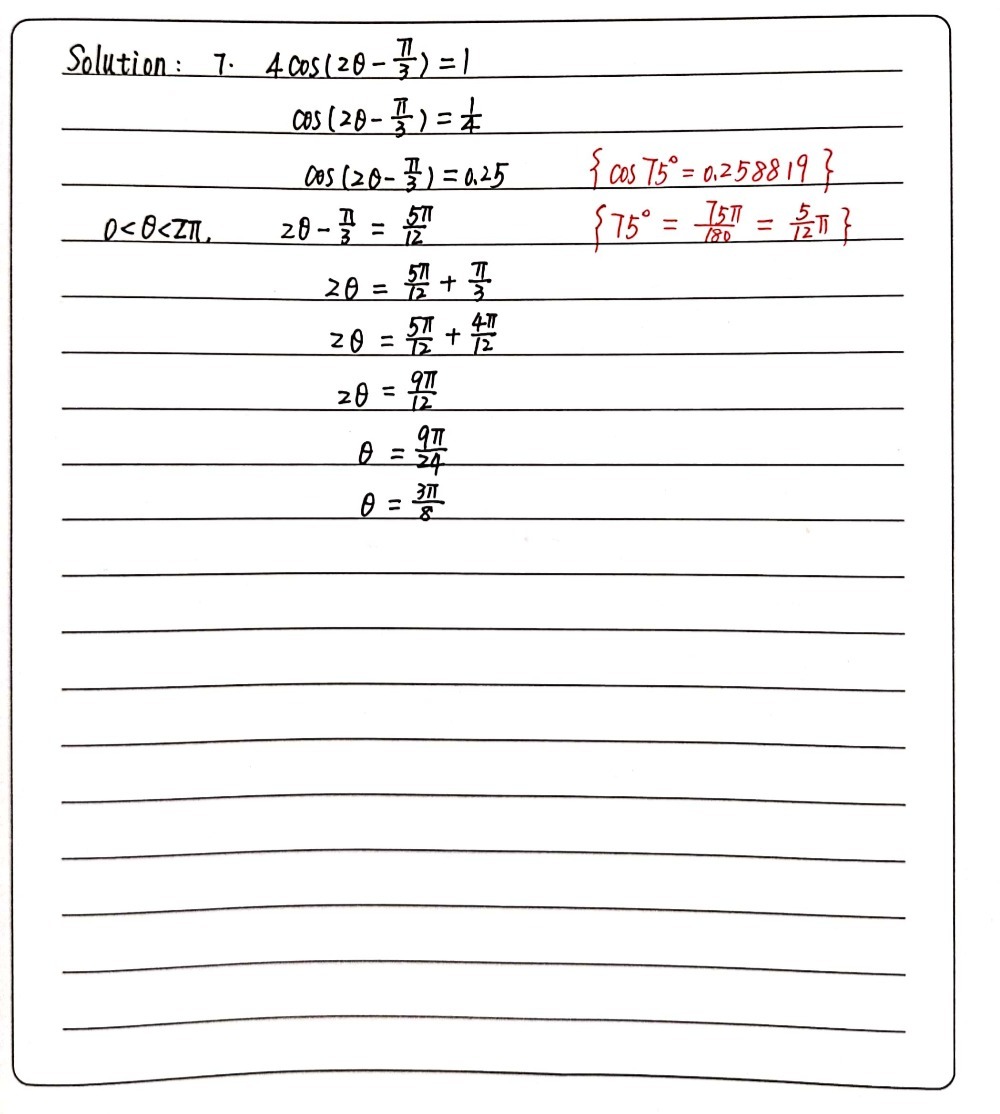 Solution: 7. 4cos(2θ - π/3) = 1
cos(2θ - π/3) = 1/4
cos(2θ - π/3) = 0.25 {cos 75° = 0.258819}
0<θ<2π, 2θ - π/3 = 5π/12 {75° = 75π/180 = 5/12 π}
2θ = 5π/12 + π/3
2θ = 5π/12 + 4π/12
2θ = 9π/12
θ = 9π/24
θ = 3π/8